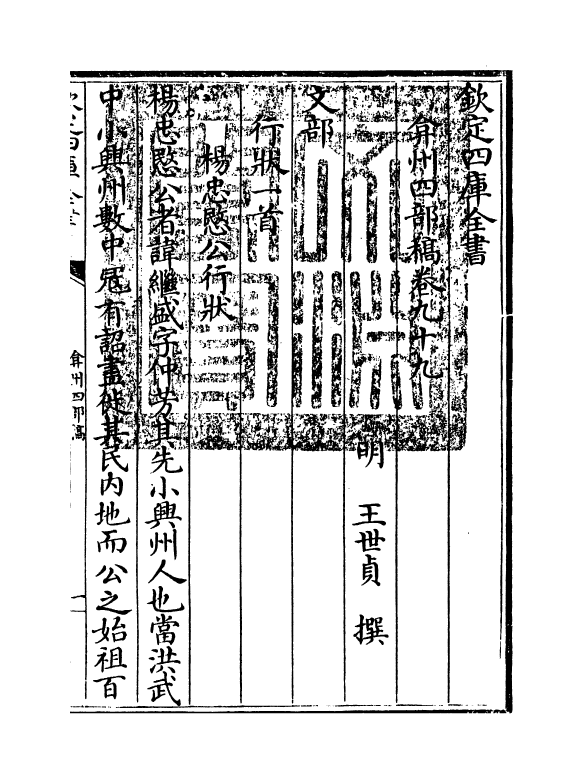 欽定四庫全書
弇州四部稿卷九十九
明 王世貞 撰
文部
行狀一首
楊忠愍公行狀
楊忠愍公者諱繼盛字仲芳其先小興州人也當洪武
中小興州數中冦有詔盡徙其民内地而公之始祖百
欽定四庫全書
弇州四部稿
一